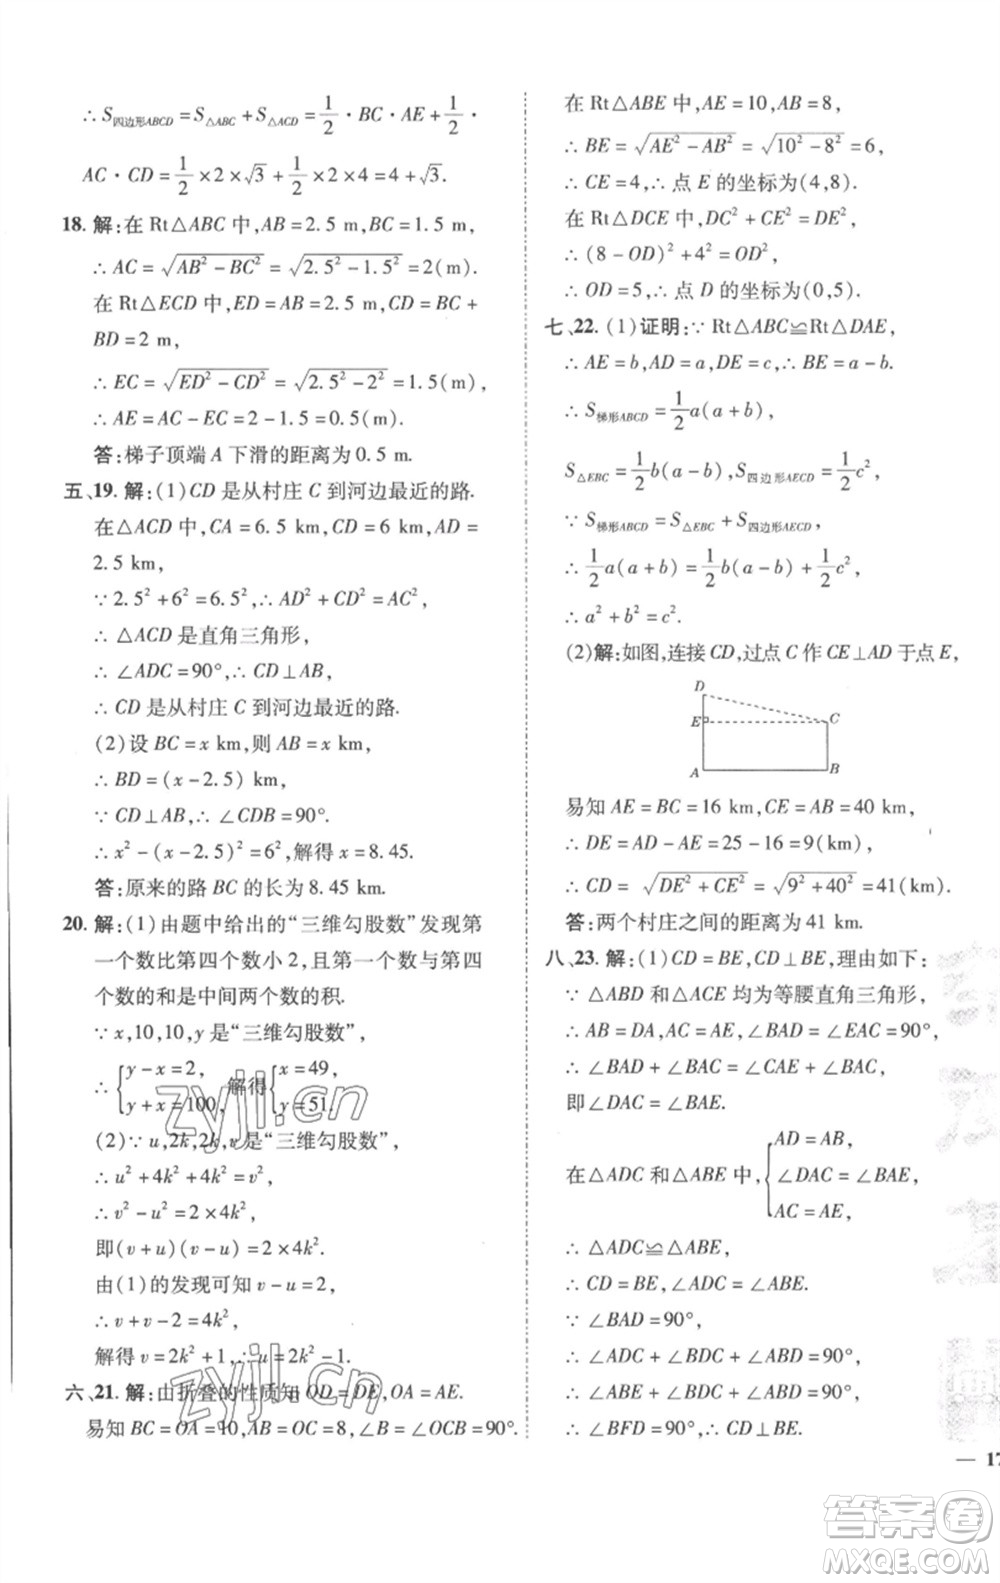 ∴ S四边形ABCD = S△ABC + S△ACD = 1/2 · BC · AE + 1/2 ·
AC · CD = 1/2 × 2 × √3 + 1/2 × 2 × 4 = 4 + √3.
18. 解:在 Rt△ABC 中,AB = 2.5 m,BC = 1.5 m,
∴ AC = √(AB² − BC²) = √(2.5² − 1.5²) = 2(m).
在 Rt△ECD 中,ED = AB = 2.5 m,CD = BC +
BD = 2 m,
∴ EC = √(ED² − CD²) = √(2.5² − 2²) = 1.5(m),
∴ AE = AC − EC = 2 − 1.5 = 0.5(m).
答:梯子顶端 A 下滑的距离为 0.5 m.
五、19. 解:(1)CD 是从村庄 C 到河边最近的路.
在△ACD 中,CA = 6.5 km,CD = 6 km,AD =
2.5 km,
∵ 2.5² + 6² = 6.5²,∴ AD² + CD² = AC²,
∴ △ACD 是直角三角形,
∴ ∠ADC = 90°,∴ CD⊥AB,
∴ CD 是从村庄 C 到河边最近的路.
(2)设 BC = x km,则 AB = x km,
∴ BD = (x − 2.5) km,
∵ CD⊥AB,∴ ∠CDB = 90°,
∴ x² − (x − 2.5)² = 6²,解得 x = 8.45.
答:原来的路 BC 的长为 8.45 km.
20. 解:(1)由题中给出的“三维勾股数”发现第
一个数比第四个数小 2,第一个数与第四
个数的和是中间两个数的积.
∵ x,10,10,y 是“三维勾股数”,
∴ { y − x = 2, y + x = 100, 解得 { x = 49, y = 51.
(2)∵ u,2k,2k,v 是“三维勾股数”,
∴ u² + 4k² + 4k² = v²,
∴ v² − u² = 2 × 4k²,
即(v + u)(v − u) = 2 × 4k²,
由(1)的发现可知 v − u = 2,
∴ v + v − 2 = 4k²,
解得 v = 2k² + 1,∴ u = 2k² − 1.
六、21. 解:由折叠的性质知 OD = DE,OA = AE.
易知 BC = OA = 10,AB = OC = 8,∠B = ∠OCB = 90°.
在 Rt△ABE 中,AE = 10,AB = 8,
∴ BE = √(AE² − AB²) = √(10² − 8²) = 6,
∴ CE = 4,∴ 点 E 的坐标为(4,8).
在 Rt△DCE 中,DC² + CE² = DE²,
∴ (8 − OD)² + 4² = OD²,
∴ OD = 5,∴ 点 D 的坐标为(0,5).
七、22. (1)证明:∵ Rt△ABC≌Rt△DAE,
∴ AE = b,AD = a,DE = c,∴ BE = a − b.
∴ S梯形ABCD = 1/2 a(a + b),
S△EBC = 1/2 b(a − b),S四边形AECD = 1/2 c²,
∵ S梯形ABCD = S△EBC + S四边形AECD,
∴ 1/2 a(a + b) = 1/2 b(a − b) + 1/2 c²,
∴ a² + b² = c².
(2)解:如图,连接 CD,过点 C 作 CE⊥AD 于点 E,
D
E C
A B
易知 AE = BC = 16 km,CE = AB = 40 km,
∴ DE = AD − AE = 25 − 16 = 9(km),
∴ CD = √(DE² + CE²) = √(9² + 40²) = 41(km).
答:两个村庄之间的距离为 41 km.
八、23. 解:(1)CD = BE,CD⊥BE,理由如下:
∵ △ABD 和△ACE 均为等腰直角三角形,
∴ AB = DA,AC = AE,∠BAD = ∠EAC = 90°,
∴ ∠BAD + ∠BAC = ∠CAE + ∠BAC,
即∠DAC = ∠BAE.
在△ADC 和△ABE 中, { AD = AB, ∠DAC = ∠BAE, AC = AE,
∴ △ADC≌△ABE,
∴ CD = BE,∠ADC = ∠ABE.
∵ ∠BAD = 90°,
∴ ∠ADC + ∠BDC + ∠ABD = 90°,
∴ ∠ABE + ∠BDC + ∠ABD = 90°,
∴ ∠BFD = 90°,∴ CD⊥BE.
— 17
zyjl.cn
zyjl.cn
答案圈
MXQE.COM